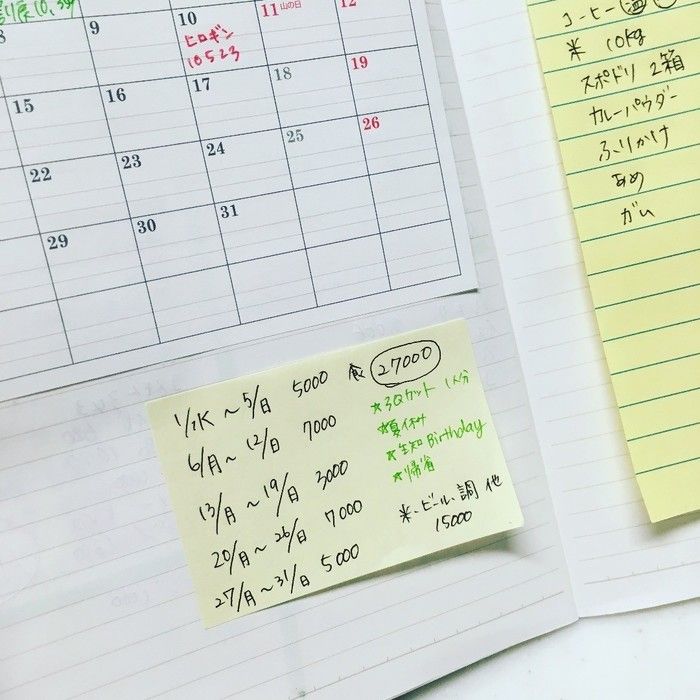 8 9 10 11 山の日 12
ヒロギン
10523
15 16 17 18 19
22 23 24 25 26
29 30 31
コーヒー
米 10kg
スポドリ 2箱
カレーパウダー
ふりかけ
あめ
ガム
1/水 ~ 5/日 5000 食 27000
6/月 ~ 12/日 7000
13/月 ~ 19/日 3000
20/月 ~ 26/日 7000
27/月 ~ 31/日 5000
★3Qカット 1人分
★夏休み
★ Birthday
★帰省
米・ビール・調 他
15000